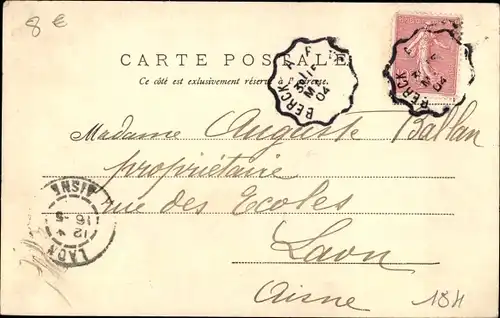 8 €
CARTE POSTALE
Ce côté est exclusivement réservé à l'adresse.
BERCK
04
BERCK
04
Madame Auguste Ballan
propriétaire
rue des Ecoles
Laon
Aisne
LAON AISNE
12
16 -5
184